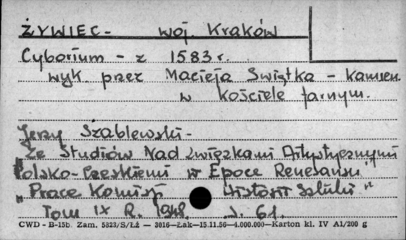 ŻYWIEC - woj. Kraków
Cyborium - z 1583 r.
wyk przez Macieja Świętka - kamien.
w kościele farnym.
Jerzy Szablewski -
"Ze Studiów Nad Związkami Artystycznymi
Polsko-Czeskiemi w Epoce Renesansu"
"Prace Komisji Historii Sztuki"
Tom IX R. 1948. s. 61.
CWD - B-15b. Zam. 5323/S/Łż — 3016—Łak—15.11.50—4.000.000—Karton kl. IV A1/200 g